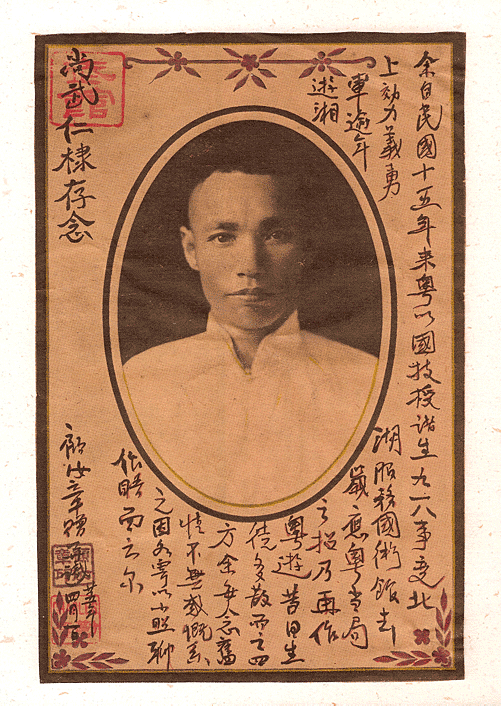 余自民國十五年来粤以國技授諸生九一八事变北
上効力義勇
軍逾年
遊湘
湖服務國術館去
歲應粤当局
之招乃再作
粤遊昔日生
徒多散而之四
方余每念舊
情不無感慨系
之因各寄以小照聊
作晤面云尔
顧汝章贈
尚武仁棣存念